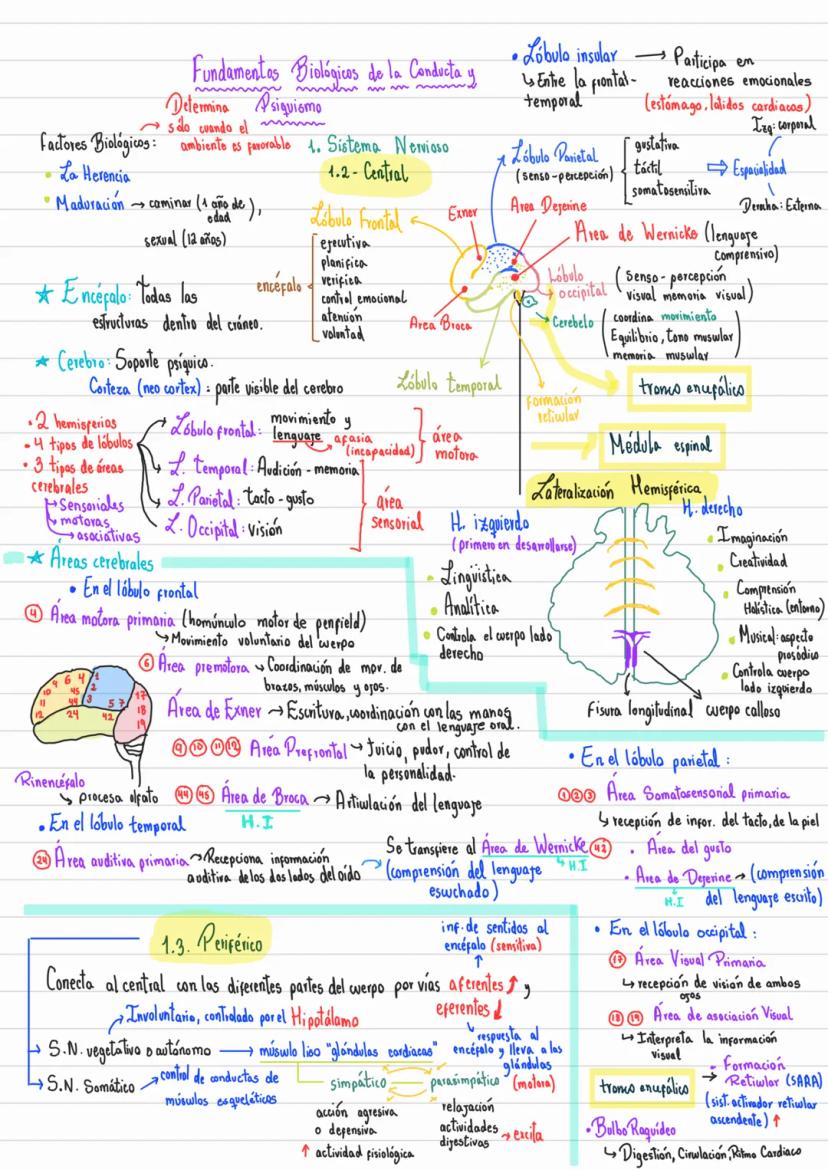 Fundamentos Biológicos de la Conducta y
Psiquismo
Factores Biológicos:
Determina
sólo cuando el
ambiente es favorable
• La Herencia
• Maduración → caminar (1 año de
edad),
sexual (12 años)
1. Sistema Nervioso
1.2- Central
• Lóbulo insular → Participa en
reacciones emocionales
(estómago, latidos cardiacos)
↳ Entre la frontal-
temporal
Lóbulo Parietal
(senso-percepción)
gustativa
táctil
somatosensitiva
⇨ Espacialidad
Izq: corporal
Derecha: Externa
Lóbulo Frontal
encéfalo
ejecutiva
planifica
verifica
control emocional
atención
voluntad
Exner
Area Dejerine
Area de Wernicke (lenguaje
comprensivo)
Lóbulo
occipital
(Senso-percepción
visual memoria visual)
Area Broca
→ Cerebelo
(coordina movimiento
Equilibrio, tono muscular
memoria muscular)
Lóbulo temporal
Formación
reticular
tronco encefálico
Médula espinal
★ Encéfalo: Todas las
estructuras dentro del cráneo.
★ Cerebro: Soporte psíquico.
Corteza (neo cortex): parte visible del cerebro
• 2 hemisferios
• 4 tipos de lóbulos
• 3 tipos de áreas
cerebrales
↳ Sensoriales
→ motoras
→ asociativas
Lóbulo frontal: movimiento y
lenguaje → afasia
(incapacidad)
área
motora
L. Temporal: Audición - memoria
L. Parietal: tacto - gusto
L. Occipital: visión
área
sensorial
Lateralización Hemisférica
H. izquierdo
(primero en desarrollarse)
• Lingüística
• Analítica
• Controla el cuerpo lado
derecho
H. derecho
• Imaginación
• Creatividad
• Comprensión
Holística (entorno)
• Musical: aspecto
prosódico
• Controla cuerpo
lado izquierdo
Fisura longitudinal
cuerpo calloso
★ Áreas cerebrales
• En el lóbulo frontal
④ Área motora primaria (homúnculo motor de penfield)
↳ Movimiento voluntario del cuerpo
⑥ Área premotora ↳ Coordinación de mov. de
brazos, músculos y ojos.
Área de Exner → Escritura, coordinación con las manos
con el lenguaje oral.
⑨ ⑩ ⑪ ⑫ Area Prefrontal ↳ Juicio, pudor, control de
la personalidad.
㊹ ㊺ Área de Broca → Articulación del lenguaje
H.I
9 6 4 1
10 45 2
11 44 3 5 7 17
12 24 42 18
19
Rinencéfalo
↳ procesa olfato
• En el lóbulo temporal
㉔ Área auditiva primaria → Recepciona información
auditiva de los dos lados del oído
Se transfiere al Área de Wernicke ㊷
↳ H.I
(comprensión del lenguaje
escuchado)
• En el lóbulo parietal:
① ② ③ Área Somatosensorial primaria
↳ recepción de infor. del tacto, de la piel
• Área del gusto
• Area de Dejerine → (comprensión
H.I del lenguaje escrito)
1.3. Periférico
Conecta al central con las diferentes partes del cuerpo por vías aferentes ↑ y
eferentes ↓
inf. de sentidos al
encéfalo (sensitiva)
↳ respuesta al
encéfalo y lleva a las
glándulas
(motora)
Involuntario, controlado por el Hipotálamo
→ S.N. vegetativo o autónomo → músculo liso "glándulas cardiacas"
→ S.N. Somático → control de conductas de
músculos esqueléticos
simpático
parasimpático
acción agresiva
o defensiva
↑ actividad fisiológica
relajación
actividades
digestivas → excita
• En el lóbulo occipital:
⑰ Área Visual Primaria
↳ recepción de visión de ambos
ojos
⑱ ⑲ Área de asociación Visual
↳ Interpreta la información
visual
tronco encefálico → Formación
Reticular (SARA)
(sist. activador reticular
ascendente) ↑
• Bulbo Raquídeo
↳ Digestión, Circulación, Ritmo Cardiaco